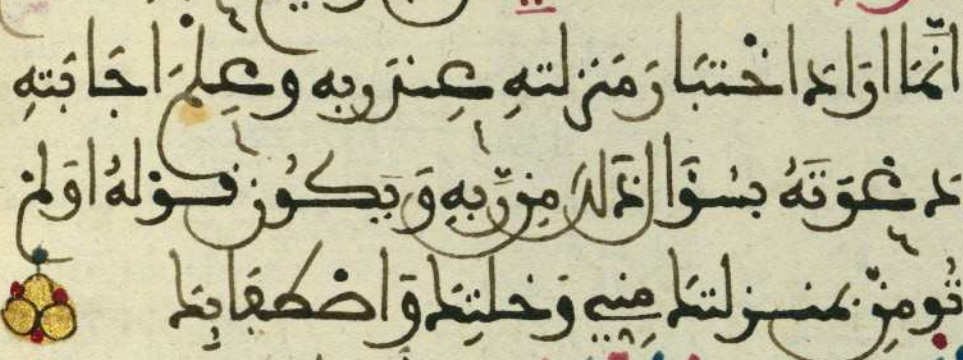 انَّمَا اَرَادَ اخْتِبَارَ مَنْزِلَتِهِ عِنْدَ رَبِّهِ وعِلْمَ اجَابَتِهِ
دَعْوَتَهُ بِسُؤَالِ ذَلِكَ مِنْ رَّبِّهِ وَيَكُونُ قَوْلُهُ اَوَلَمْ
تُومِنْ بِمَنْزِلَتِكَ مِنِّي وَخُلَّتِكَ وَاصْطِفَائِكَ